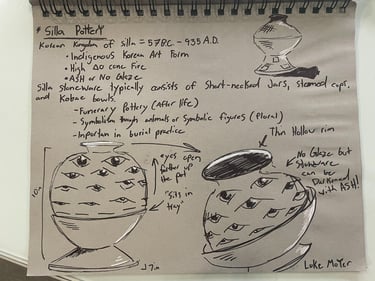 * Silla Pottery
Korean Kingdom of Silla = 57BC - 935 A.D.
• Indigenous Korean Art Form
• High Δ10 cone Fire
• ASH or No Glaze
Silla stoneware typically consists of Short-necked Jars, steamed cups,
and Kobae bowls.
- Funerary Pottery (After life)
- Symbolism through animals or Symbolic figures (Plural)
- Importan in burial practice
Thin Hollow rim
eyes open
farther up
the pot
"Sits in
tray"
No Glaze but
Stoneware
can be
Darkened
with ASH!
10in
7in
Luke Moyer